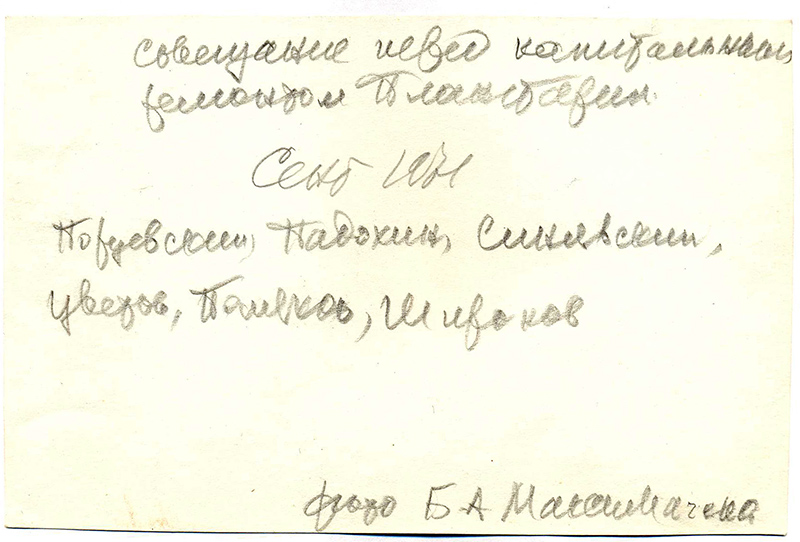 совещание перед капитальным
ремонтом Планетария.
Сент
Порцевский, Падохин, Синявский,
Цветов, Поляков, Широков
фото Б А Максимачева